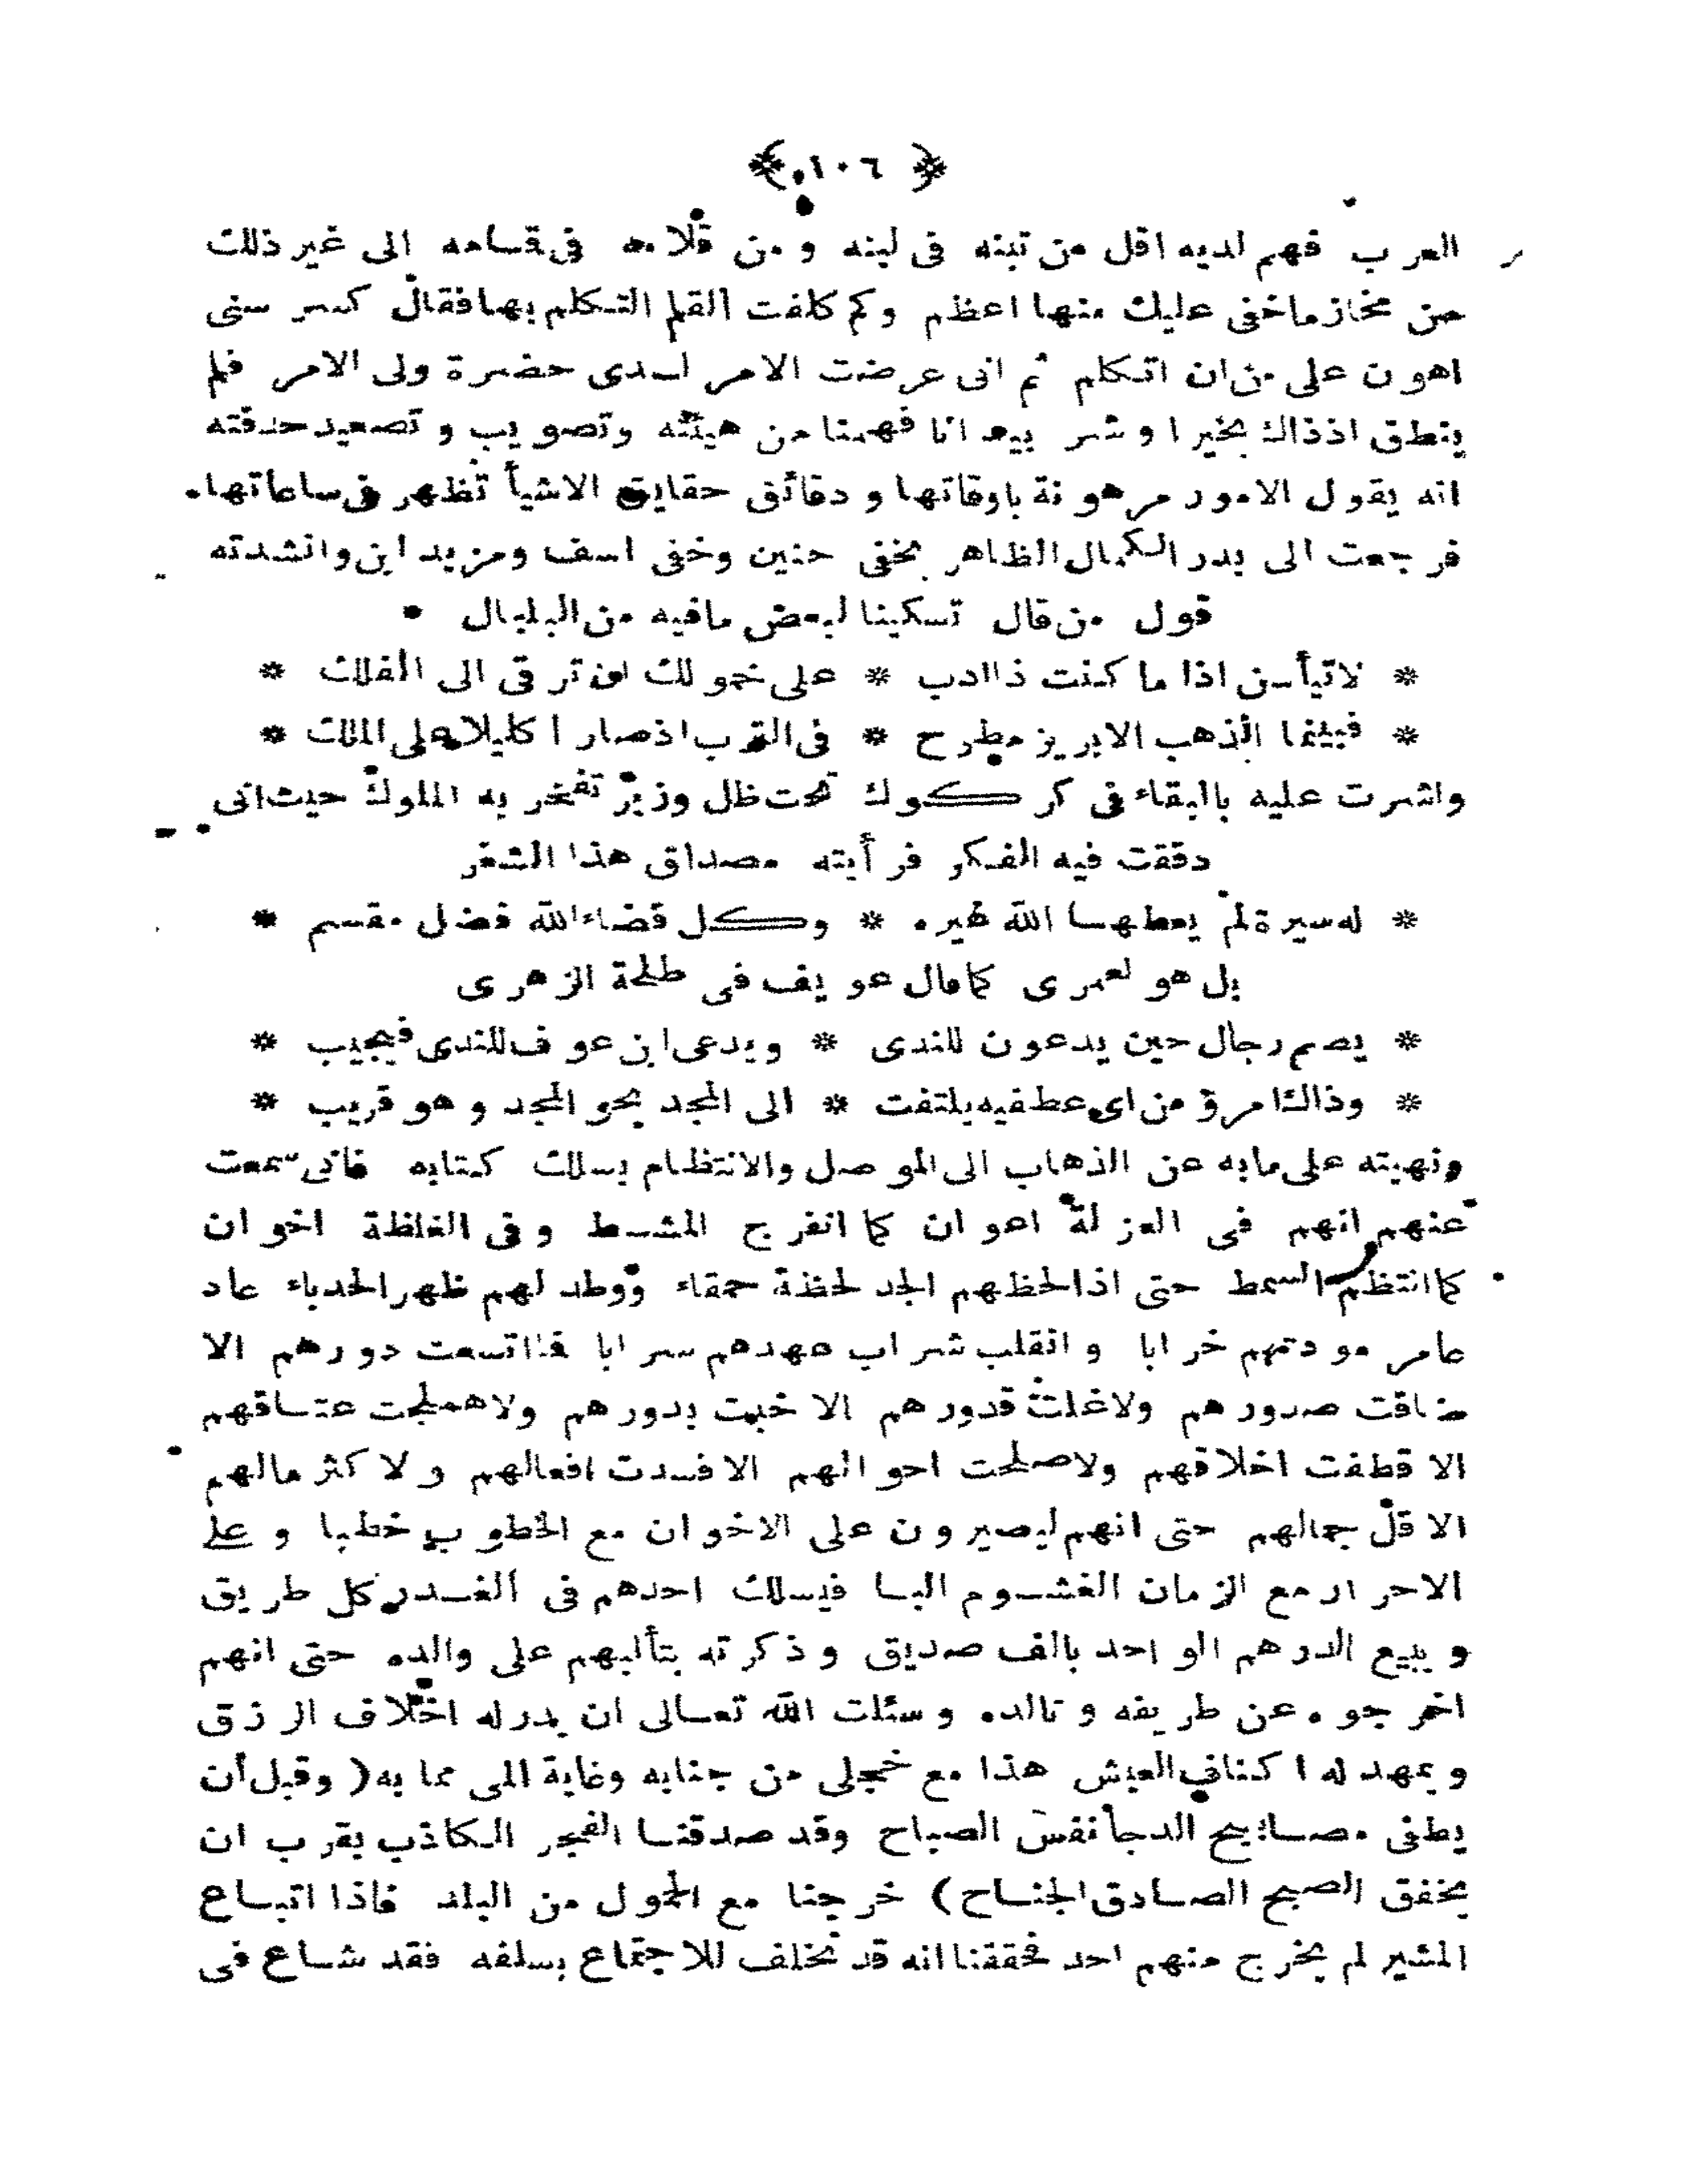 ﴿ ١٠٦ ﴾
العرب فهم لديه اقل من تبنه فى لبنه ومن قلامه فى قسامه الى غير ذلك
من مخاز ماخفى عليك منها اعظم وكم كلفت القلم التكلم بها فقال كسر سنى
اهون على من ان اتكلم ثم انى عرضت الامر لدى حضرة ولى الامر فلم
ينطق اذذاك بخير او شر بيد انا فهمنا من هيئته وتصويب وتصعيد حدقته
انه يقول الامور مرهونة باوقاتها ودقائق حقايق الاشيأ تظهر فى ساعاتها
فرجعت الى بدر الكمال الظاهر بخفى حنين وخفى اسف ومزيد اين وانشدته
قول من قال تسكينا لبعض مافيه من البلبال
* لاتيأسن اذا ما كنت ذا ادب * على خمولك ان ترقى الى الفلك *
* فبينما الذهب الابريز مطرح * فى الترب اذصار اكليلا على الملك *
واشرت عليه بالبقاء فى كركوك تحت ظل وزير تفتخر به الملوك حيث انى
دققت فيه الفكر فرأيته مصداق هذا الشعر
* له سيرة لم يعطها الله غيره * وكل قضاء الله فضل مقسم *
بل هو لعمرى كما قال عويف فى طلحة الزهرى
* يصم رجال حين يدعون للندى * ويدعى ابن عوف للندى فيجيب *
* وذاك امرؤ من اى عطفيه يلتفت * الى المجد يحو المجد وهو قريب *
ونهيته على مابه عن الذهاب الى الموصل والانتظام بسلك كتابه فانى سمعت
عنهم انهم فى العزلة اعوان كما انفرج المشط وفى الغلظة اخوان
كما انتظم السمط حتى اذا لحظهم الجد لحظة حمقاء ووطد لهم ظهر الحدباء عاد
عامر مودتهم خرابا وانقلب شراب عهدهم سرابا فما اتسعت دورهم الا
ضاقت صدورهم ولاغلت قدورهم الا خبت بدورهم ولاهملجت عتاقهم
الا قطفت اخلاقهم ولاصلحت احوالهم الا فسدت افعالهم ولا كثر مالهم
الا قل جمالهم حتى انهم ليصيرون على الاخوان مع الخطوب خطبا وعلى
الاحرار مع الزمان الغشوم البا فيسلك احدهم فى الغدر كل طريق
ويبيع الدرهم الواحد بالف صديق وذكرته بتألبهم على والده حتى انهم
اخرجوه عن طريفه وتالده وسئلت الله تعالى ان يدرله اخلاف الرزق
ويمهد له اكناف العيش هذا مع خجلى من جنابه وغاية المى مما به ( وقبل أن
يطفى مصابيح الدجا نفس الصباح وقد صدقنا الفجر الكاذب بقرب ان
يخفق الصبح الصادق الجناح ) خرجنا مع الحمول من البلد فاذا اتباع
المشير لم يخرج منهم احد فحققنا انه قد تخلف للاجتماع بسلفه فقد شاع فى